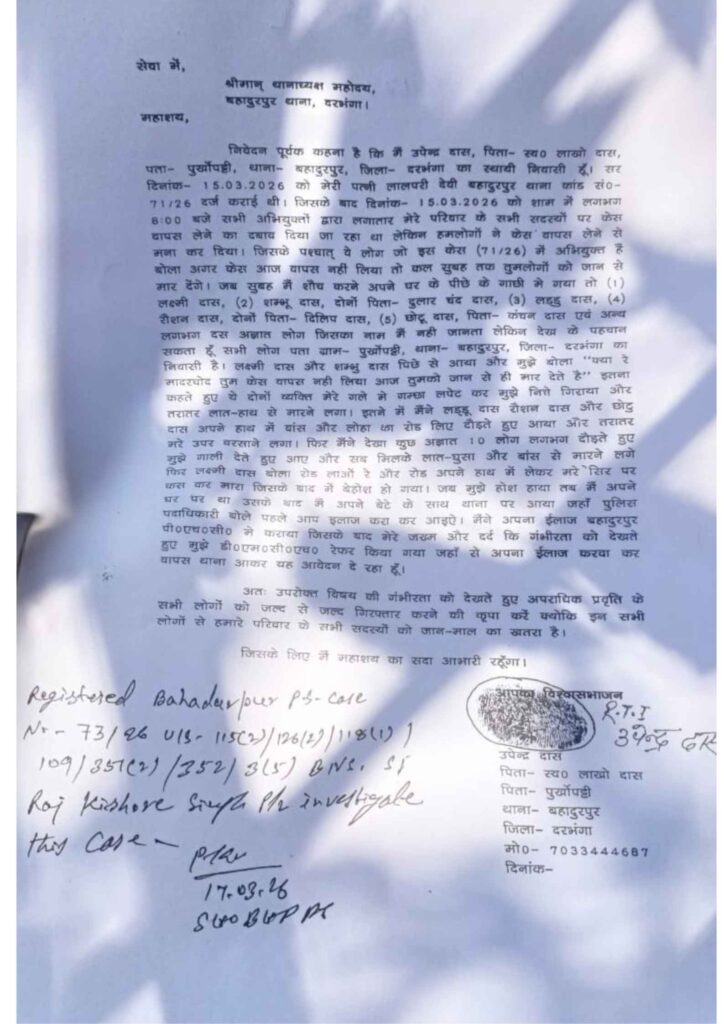 सेवा में,
श्रीमान् थानाध्यक्ष महोदय,
बहादुरपुर थाना, दरभंगा।
महाशय,
निवेदन पूर्वक कहना है कि मैं उपेन्द्र दास, पिता- स्व0 लाखो दास,
पता- पुर्खोपट्टी, थाना- बहादुरपुर, जिला- दरभंगा का स्थायी निवासी हूँ। सर
दिनांक- 15.03.2026 को मेरी पत्नी लालपरी देवी बहादुरपुर थाना कांड सं0-
71/26 दर्ज कराई थी। जिसके बाद दिनांक- 15.03.2026 को शाम में लगभग
8:00 बजे सभी अभियुक्तों द्वारा लगातार मेरे परिवार के सभी सदस्यों पर केस
वापस लेने का दबाव दिया जा रहा था लेकिन हमलोगों ने केस वापस लेने से
मना कर दिया। जिसके पश्चात् ये लोग जो इस केस (71/26) में अभियुक्त है
बोला अगर केस आज वापस नही लिया तो कल सुबह तक तुमलोगों को जान से
मार देंगे। जब सुबह मैं शौच करने अपने घर के पीछे के गाछी मे गया तो (1)
लक्ष्मी दास, (2) शम्भू दास, दोनों पिता- दुलार चंद दास, (3) लड्डु दास, (4)
रौशन दास, दोनों पिता- दिलिप दास, (5) छोटू दास, पिता- कंचन दास एवं अन्य
लगभग दस अज्ञात लोग जिसका नाम मैं नही जानता लेकिन देख के पहचान
सकता हूँ सभी लोग पता ग्राम- पुर्खोपट्टी, थाना- बहादुरपुर, जिला- दरभंगा का
निवासी है। लक्ष्मी दास और शम्भु दास पिछे से आया और मुझे बोला "क्या रे
मादरचोद तुम केस वापस नही लिया आज तुमको जान से ही मार देते है" इतना
कहते हुए ये दोनों व्यक्ति मेरे गले मे गम्छा लपेट कर मुझे निचे गिराया और
तरातर लात-हाथ से मारने लगा। इतने में मैंने लड्डू दास रौशन दास और छोटु
दास अपने हाथ में बांस और लोहा का रोड लिए दौड़ते हुए आया और तरातर
मरे उपर बरसाने लगा। फिर मैंने देखा कुछ अज्ञात 10 लोग लगभग दौड़ते हुए
मुझे गाली देते हुए आए और सब मिलके लात-घुसा और बांस से मारने लगे
फिर लक्ष्मी दास बोला रोड लाओं रे और रोड अपने हाथ में लेकर मरे सिर पर
कस कर मारा जिसके बाद में बेहोश हो गया। जब मुझे होश हाया तब मैं अपने
घर पर था उसके बाद मैं अपने बेटे के साथ थाना पर आया जहाँ पुलिस
पदाधिकारी बोले पहले आप इलाज करा कर आइऐ। मैंने अपना ईलाज बहादुरपुर
पी0एच0सी0 मे कराया जिसके बाद मेरे जख्म और दर्द कि गंभीरता को देखते
हुए मुझे डी0एम0सी0एच0 रेफर किया गया जहाँ से अपना ईलाज करवा कर
वापस थाना आकर यह आवेदन दे रहा हूँ।
अतः उपरोक्त विषय की गंभीरता को देखते हुए अपराधिक प्रवृति के
सभी लोगों को जल्द से जल्द गिरफ्तार करने की कृपा करें क्योकि इन सभी
लोगों से हमारे परिवार के सभी सदस्यों को जान-माल का खतरा है।
जिसके लिए मैं महाशय का सदा आभारी रहूँगा।
आपका विश्वासभाजन
R.T.I
उपेन्द्र दास
उपेन्द्र दास
पिता- स्व0 लाखो दास
पता- पुर्खोपट्टी
थाना- बहादुरपुर
जिला- दरभंगा
मो0- 7033444687
दिनांक-
Registered Bahadurpur PS-Case
No- 73/26 U/S- 115(2)/126(2)/118(1)/
109/351(2)/352/3(5) BNS. SI
Raj Kishore Singh Plz investigate
this Case-
17.03.26
SHO BHP PS